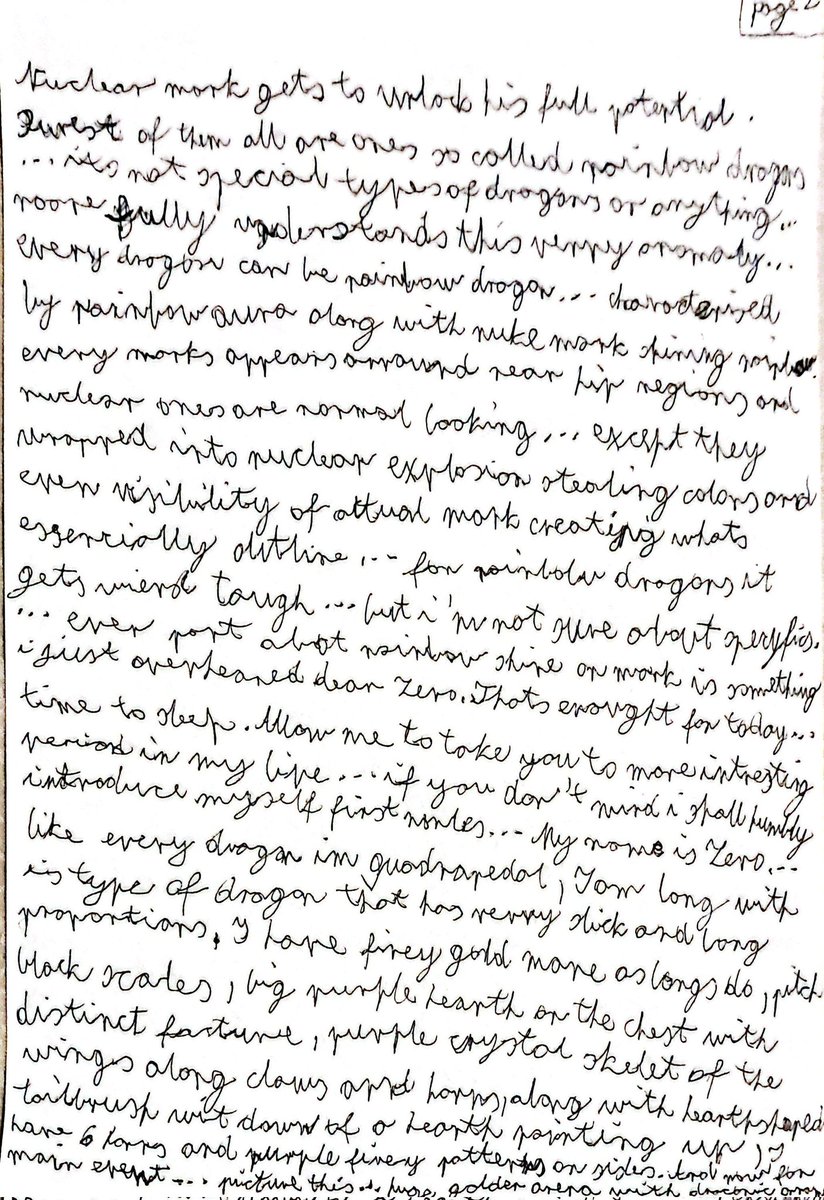 page 2
Nuclear mark gets to unlock his full potential.
Purest of them all are ones so called rainbow dragons
... its not special types of dragons or anything...
noone fully understands this verry anomaly...
every dragon can be rainbow dragon... characterised
by rainbow aura along with nuke mark shining rainbow.
every marks appears arround rear hip regions and
nuclear ones are normal looking... except they
wrapped into nuclear explosion stealing colors and
even visibility of attual mark creating whats
essencially outline... for rainbow dragons it
gets wierd tough... but i'm not sure about specyfics.
... ever part about rainbow shine on mark is something
i just overheared dear Zero. Thats enought for today...
time to sleep. Allow me to take you to more intresting
period in my life... if you don't mind i shall humbly
introduce myself first nontes... My name is Zero...
like every dragon im quadrapedal, I am long with
is type of dragon that has verry slick and long
proportions, I have firey gold mane as longs do, pitch
black scales, big purple hearth on the chest with
distinct facture, purple crystal skelet of the
wings along claws and horns, along with hearthshaped
tailbrush wit down of a hearth pointing up, I
have 6 horns and purple firey patterns on sides. And now for
main event... picture this... huge golden arena with draconic